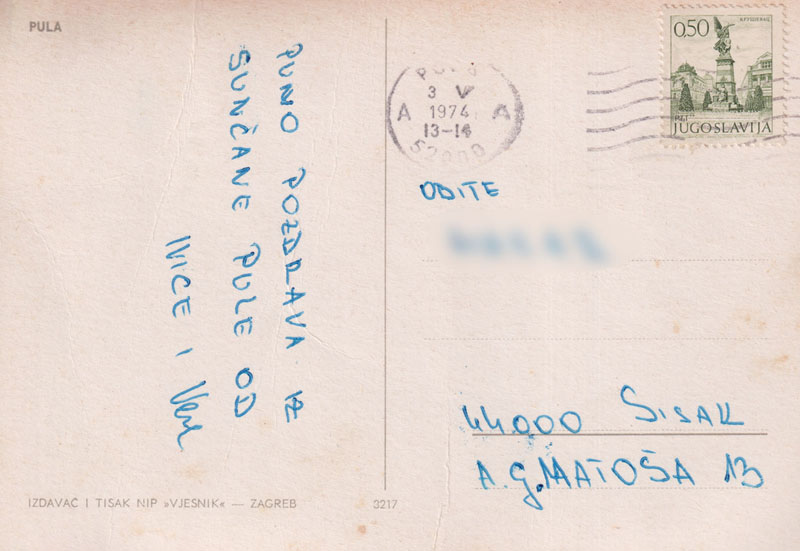 PULA
PUNO POZDRAVA IZ
SUNČANE PULE OD
IVICE I Vere
PULA
3 V
1974
A A
13-14
52000
0,50
KRUŠEVAC
JUGOSLAVIJA
OBITE
44000 SISAK
A.G. MATOŠA 13
IZDAVAČ I TISAK NIP »VJESNIK« — ZAGREB 3217